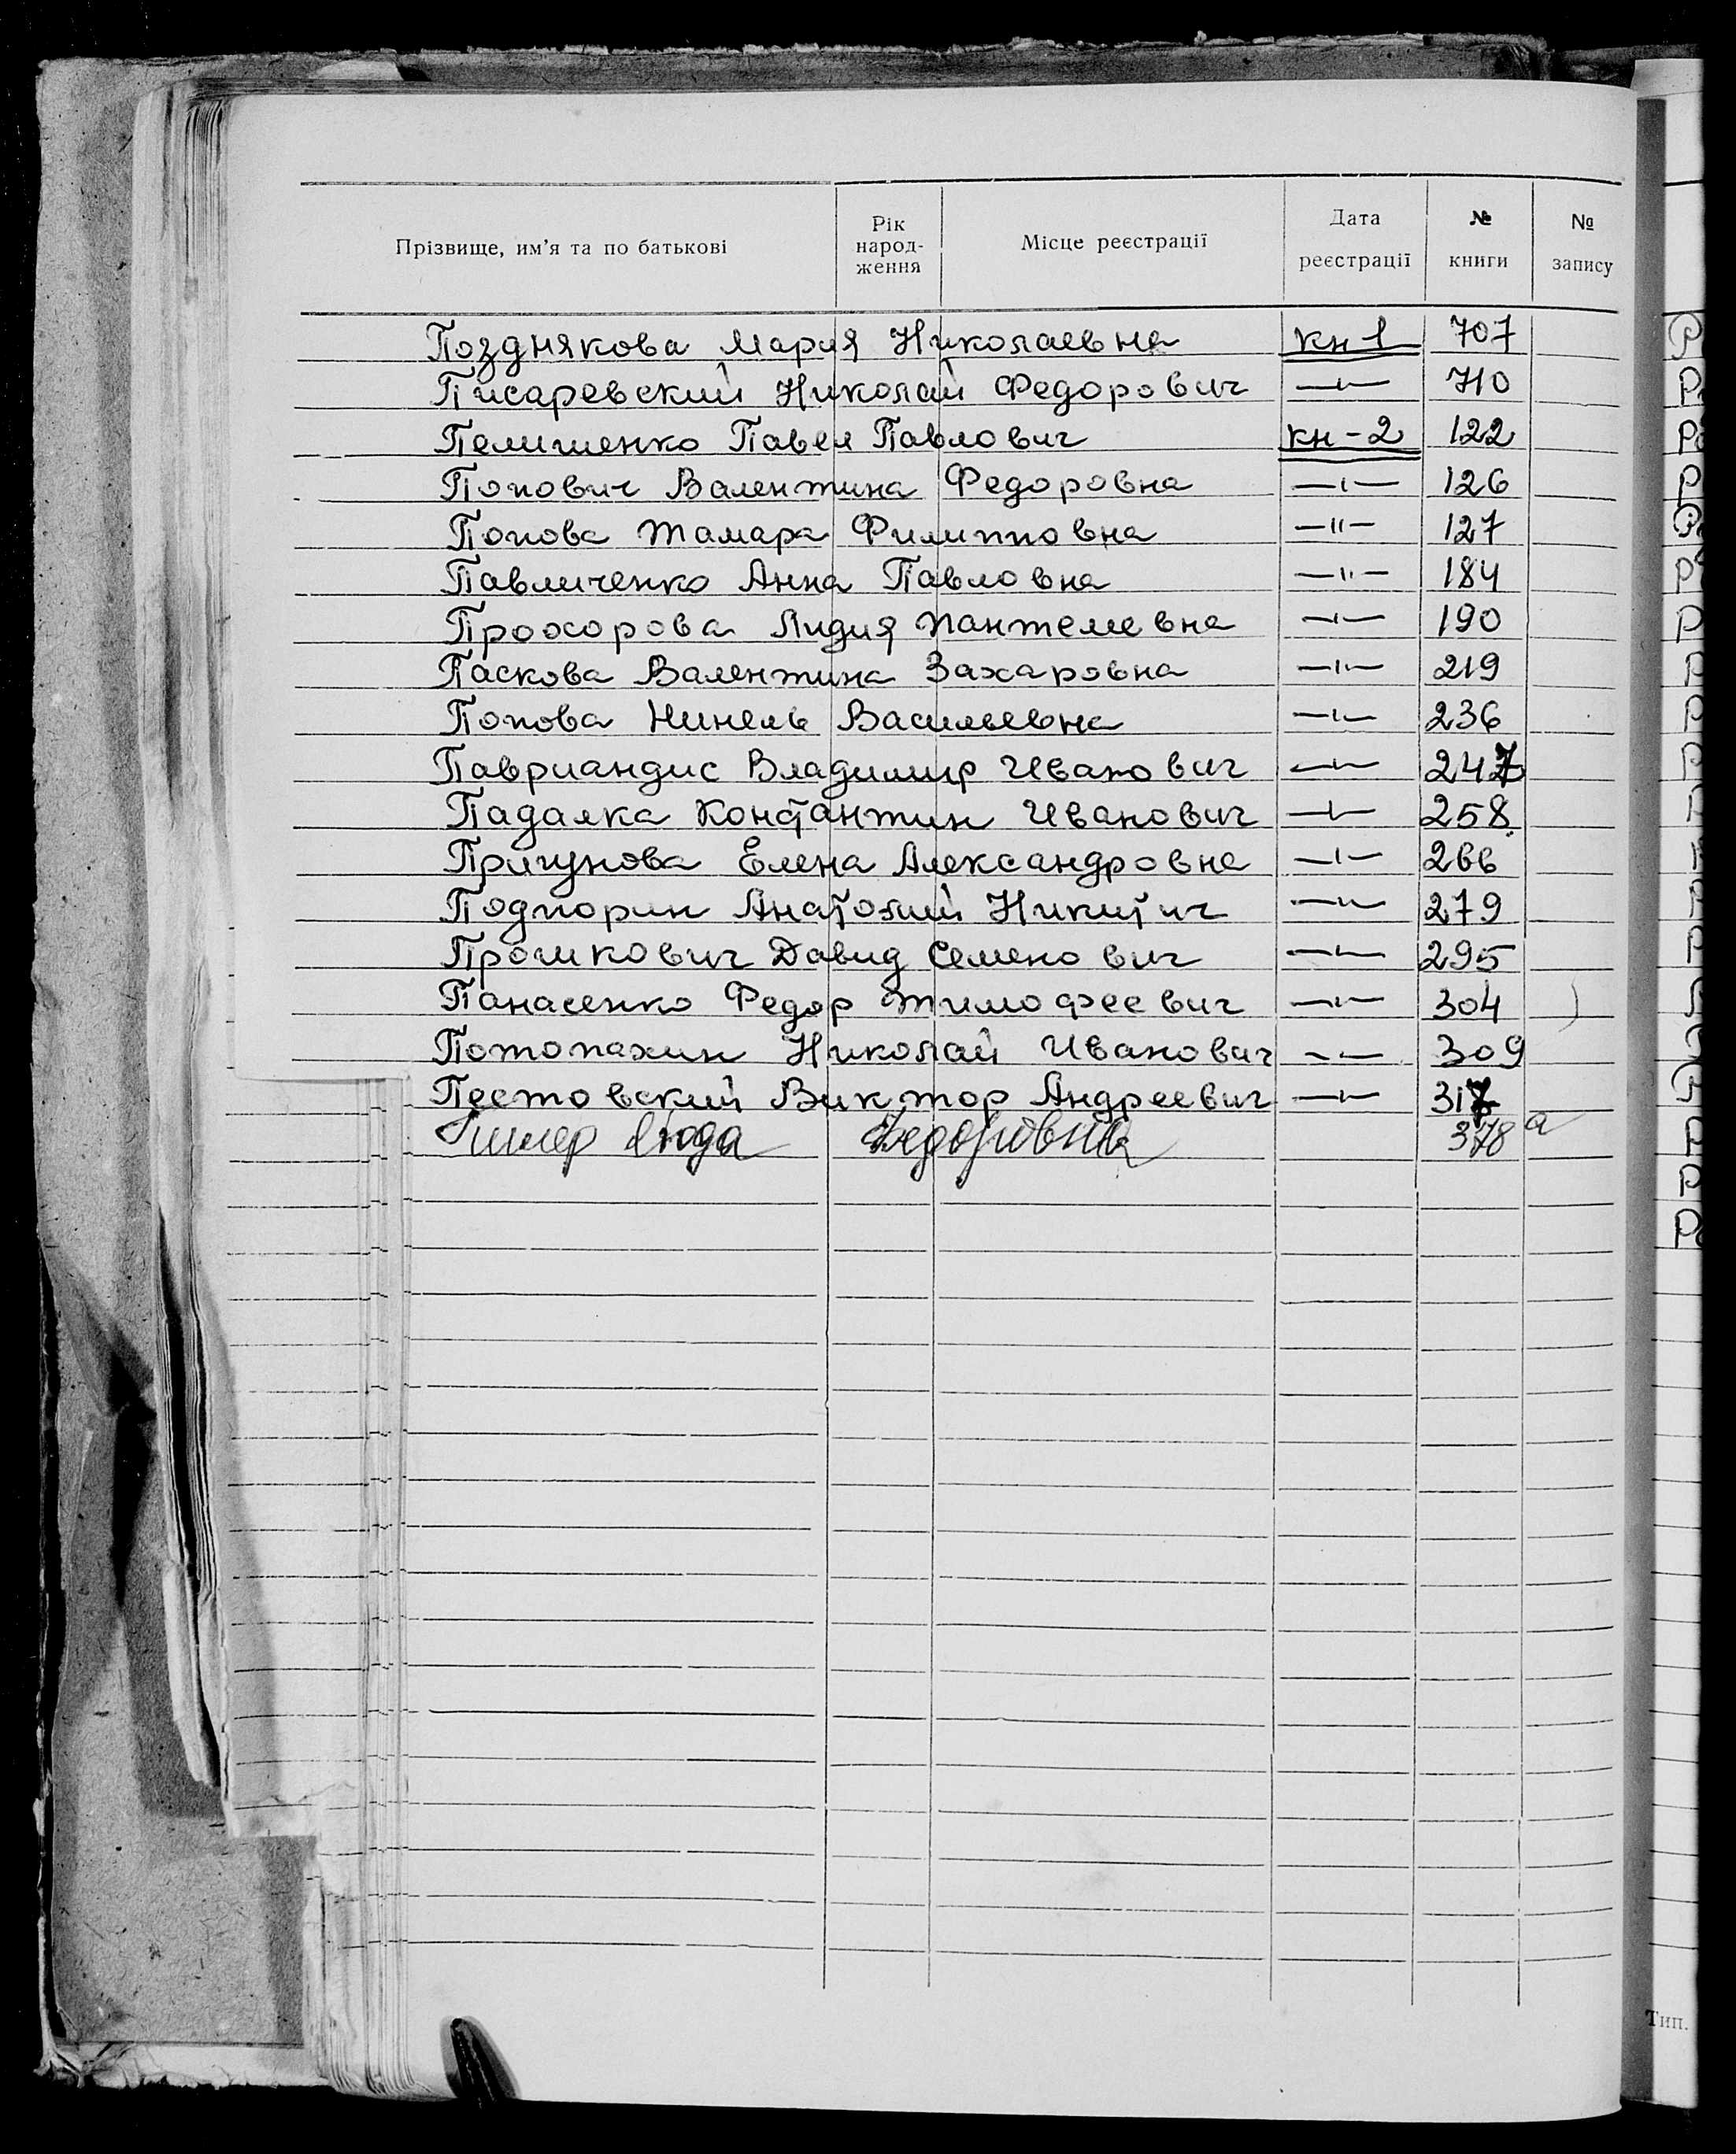 Прізвище, им'я та по батькові | Рік народ-ження | Місце реєстрації | Дата реєстрації | № книги | № запису
Позднякова Мария Николаевна кн-1 707
Писаревский Николай Федорович —"— 710
Пелишенко Павел Павлович кн-2 122
Попович Валентина Федоровна —"— 126
Попова Тамара Филипповна —"— 127
Павличенко Анна Павловна —"— 184
Проохорова Лидия Пантелеевна —"— 190
Паскова Валентина Захаровна —"— 219
Попова Нинель Васильевна —"— 236
Павриандис Владимир Иванович —"— 247
Падалка Константин Иванович —"— 258
Пригунова Елена Александровна —"— 266
Подпорин Анатолий Никитич —"— 279
Прошкович Давид Семенович —"— 295
Панасенко Федор Тимофеевич —"— 304
Потопахин Николай Иванович —"— 309
Пестовский Виктор Андреевич —"— 317
Федоровна 378 а
Тип.